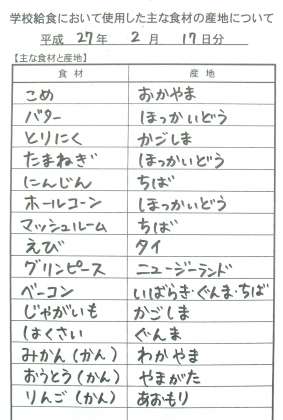 学校給食において使用した主な食材の産地について
平成 27年 2月 17日分
【主な食材と産地】
食材 産地
こめ おかやま
バター ほっかいどう
とりにく かごしま
たまねぎ ほっかいどう
にんじん ちば
ホールコーン ほっかいどう
マッシュルーム ちば
えび タイ
グリンピース ニュージーランド
ベーコン いばらき・ぐんま・ちば
じゃがいも かごしま
はくさい ぐんま
みかん(かん) わかやま
おうとう(かん) やまがた
りんご(かん) あおもり